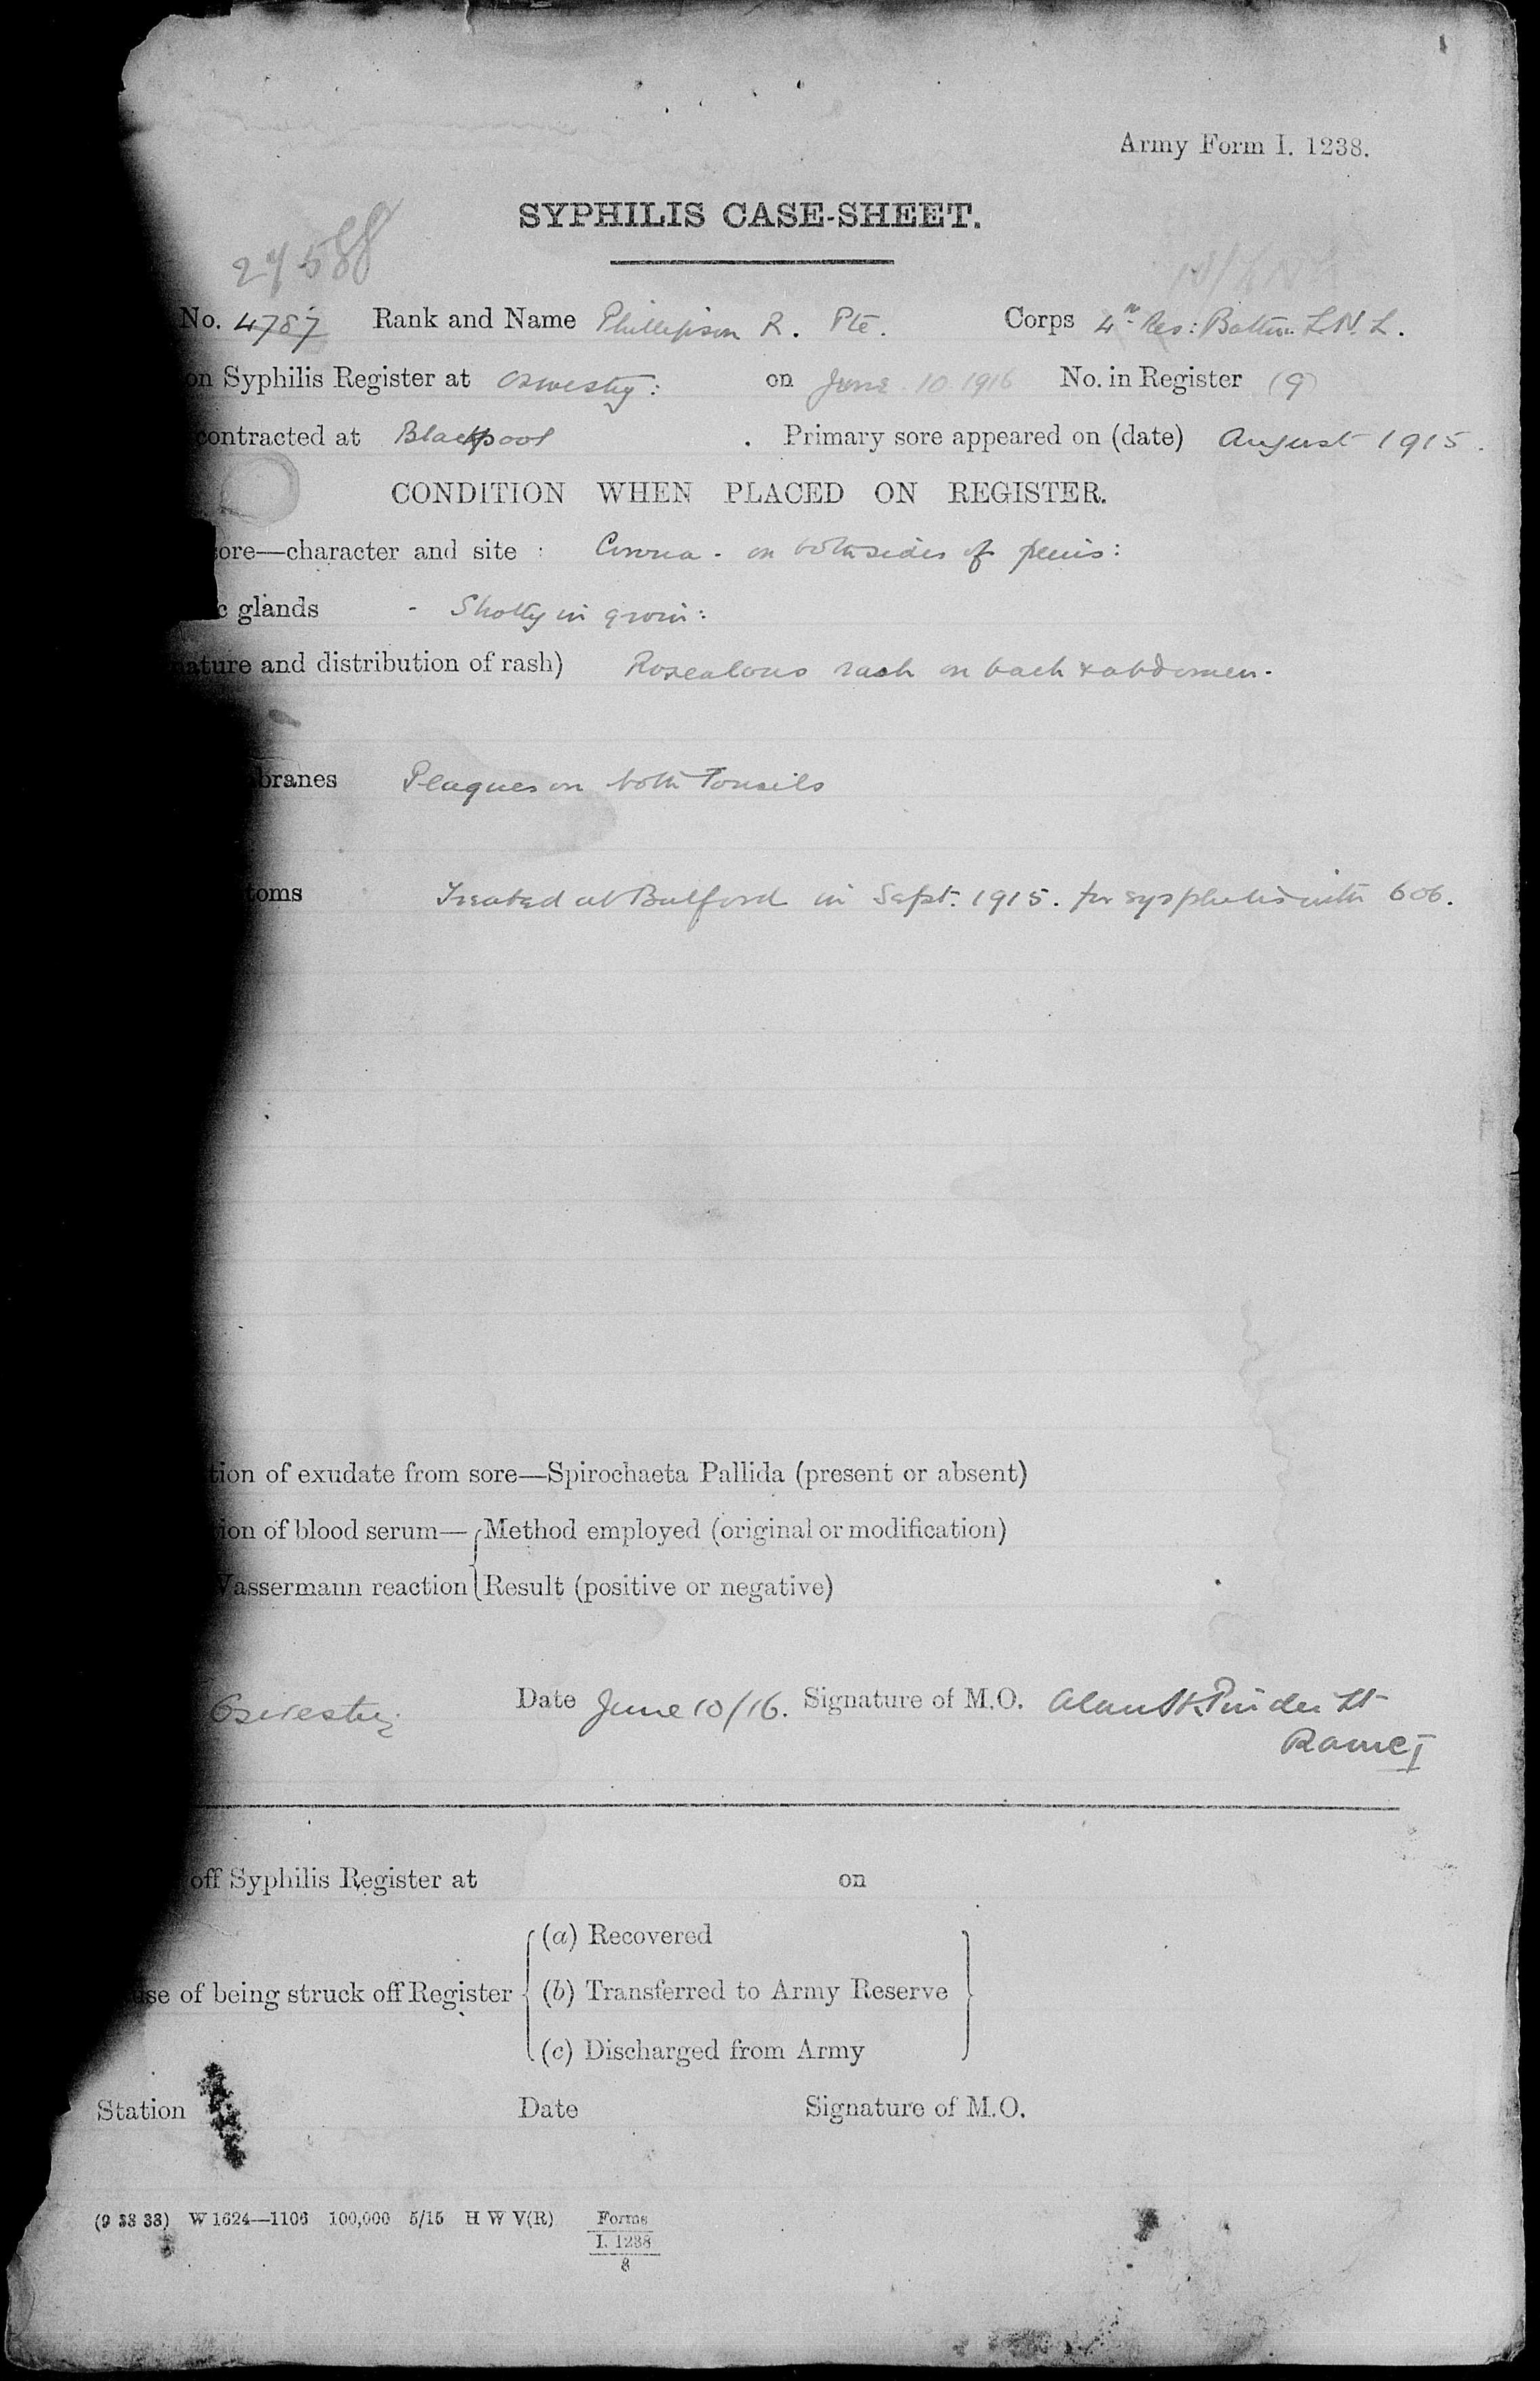 Army Form I. 1238.
SYPHILIS CASE-SHEET.
24588
No. 4787 Rank and Name Phillipson R. Pte. Corps 4th Res: Battn. L.N.L.
on Syphilis Register at Oswestry: on June 10 1916 No. in Register (9)
contracted at Blackpool . Primary sore appeared on (date) August 1915.
CONDITION WHEN PLACED ON REGISTER.
ore—character and site : Corona - on both sides of penis:
c glands - Shotty in groin:
nature and distribution of rash) Rosealous rash on back & abdomen.
branes Plaques on both Tonsils
toms Treated at Bulford in Sept. 1915. for sysphilis with 606.
tion of exudate from sore—Spirochaeta Pallida (present or absent)
ion of blood serum— Method employed (original or modification)
Wassermann reaction Result (positive or negative)
Oswestry Date June 10/16. Signature of M.O. Pinder Lt
RAMC T
off Syphilis Register at on
(a) Recovered
use of being struck off Register (b) Transferred to Army Reserve
(c) Discharged from Army
Station Date Signature of M.O.
(9 38 33) W 1624—1106 100,000 5/15 H W V(R) Forms
I. 1238
8